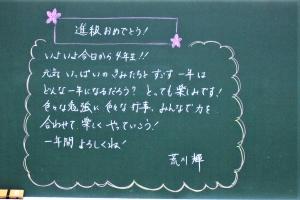 進級おめでとう!
いよいよ今日から4年生!!
元気いっぱいのきみたちとすごす一年は
どんな一年になるだろう?とっても楽しみです!
色々な勉強に色々な行事、みんなで力を
合わせて楽しくやっていこう!
一年間よろしくね!
荒川 輝